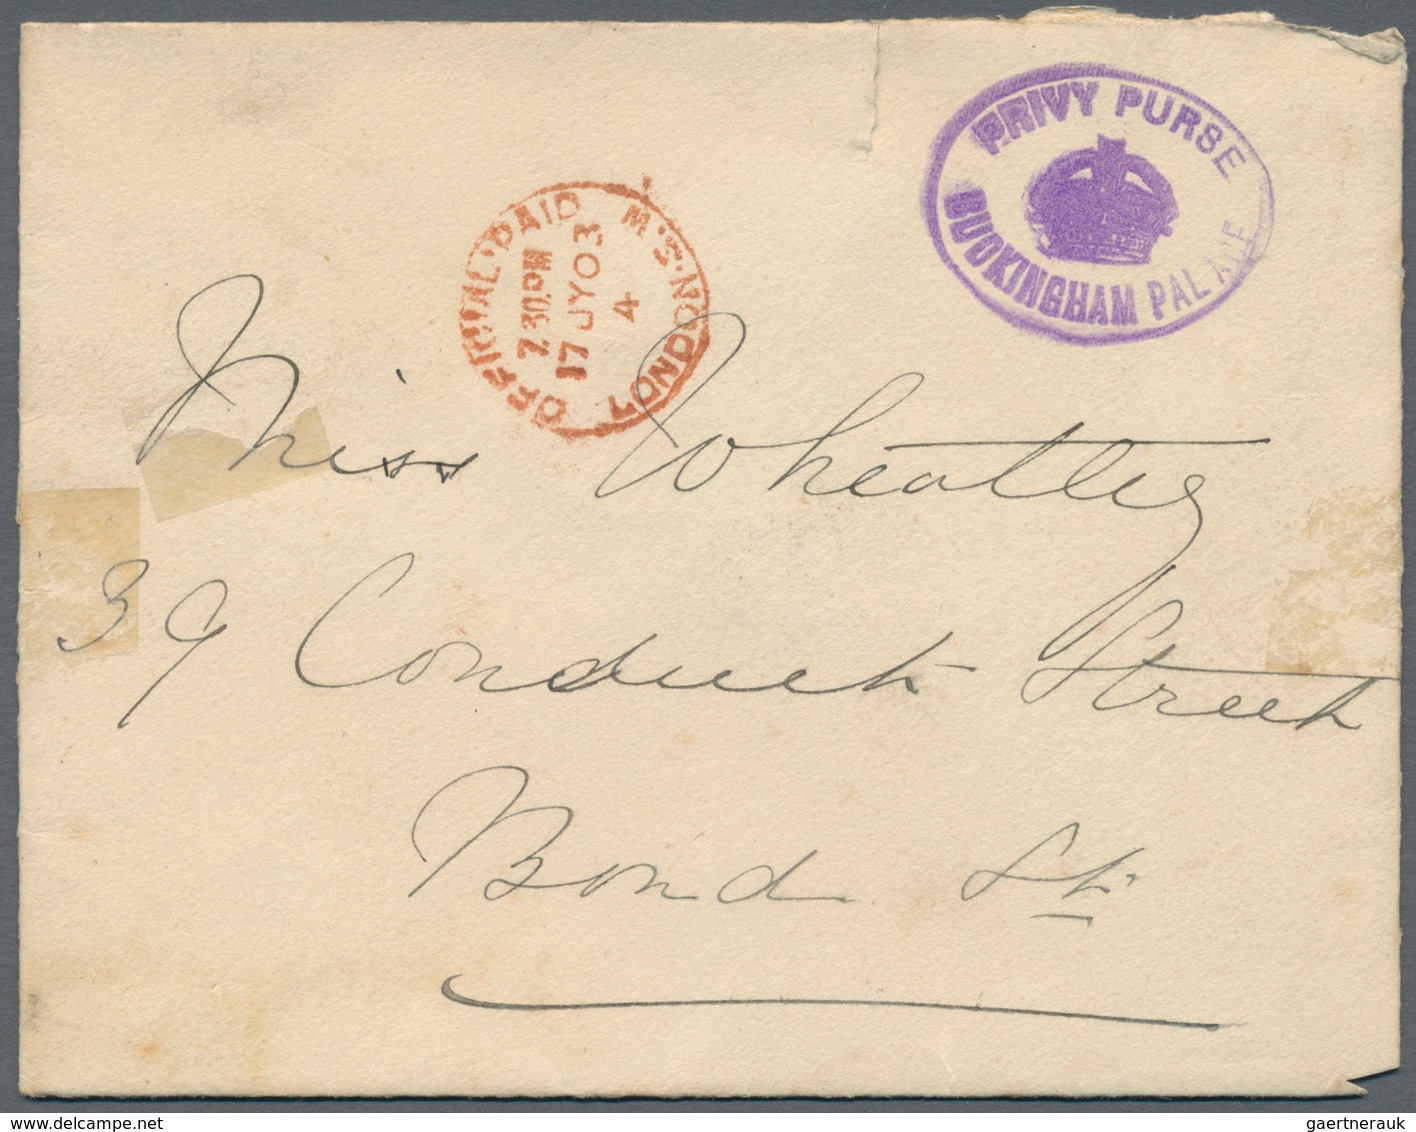 PRIVY PURSE
BUCKINGHAM PALACE
OFFICIAL·PAID
LONDON·S.W.
7.30PM
17 JY 03
4
Miss Wheatley
39 Conduit Street
Bond St.
gaertnerauk@delcampe.com